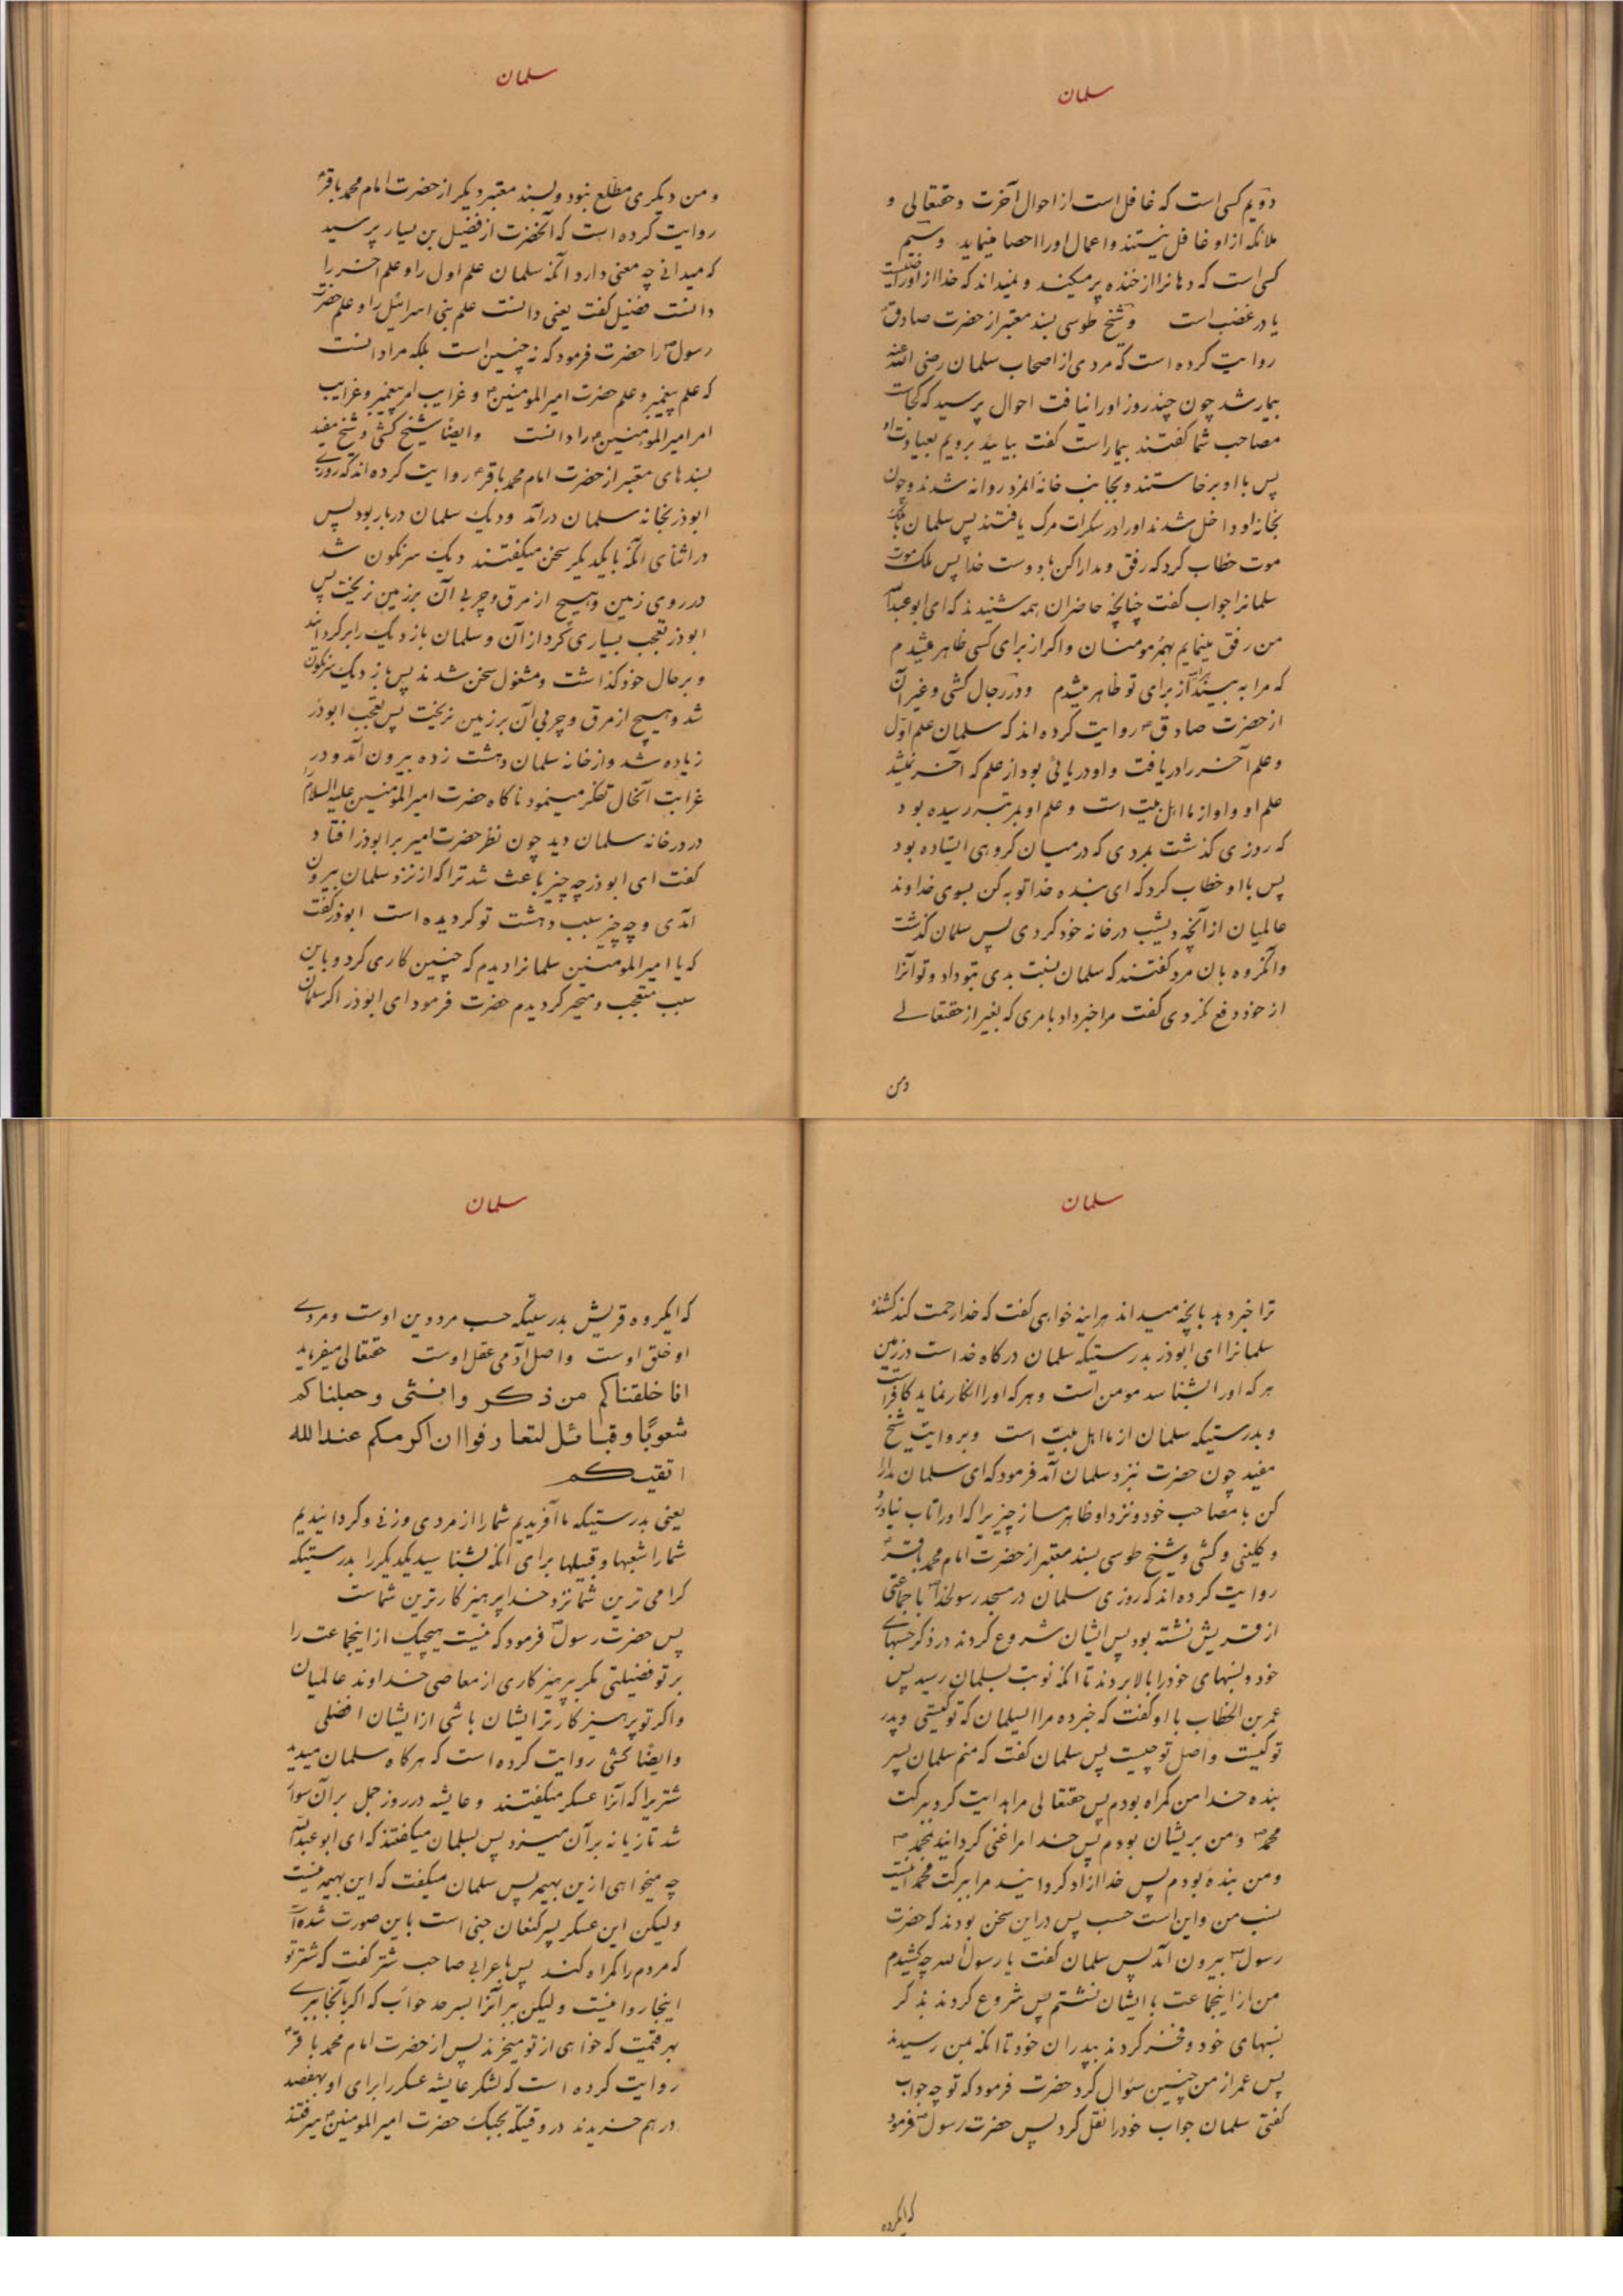 سلمان
دویم کسی است که غافل است از احوال آخرت و حقتعالی و
ملائکه از او غافل نیستند و اعمال اورا احصا مینماید وسیم
کسی است که دهانرا از خنده پر میکند و نمیداند که خدا از او راضیست
یا در غضب است وشیخ طوسی بسند معتبر از حضرت صادق
روایت کرده است که مردی از اصحاب سلمان رضی الله عنه
بیمار شد چون چند روز اورا نیافت احوال پرسید که کجاست
مصاحب شما گفتند بیمار است گفت بیائید برویم بعیادت او
پس با او برخاستند و بجانب خانه المرد روانه شدند وچون
بخانه او داخل شدند اورا در سکرات مرک یافتند پس سلمان بملک
موت خطاب کرد که رفق و مدارا کن با دوست خدا پس ملک موت
سلمانرا جواب گفت چنانچه حاضران همه شنیدند که ای ابو عبدالله
من رفق مینمایم بهمه مومنان واکر از برای کسی ظاهر میشدم
که مرا به بیند از برای تو ظاهر میشدم ودر رجال کشی وغیر آن
از حضرت صادق روایت کرده اند که سلمان علم اول
وعلم آخر را دریافت و او دریائی بود از علم که آخر نمیشد
علم او و او از ما اهل بیت است و علم او بمرتبه رسیده بود
که روزی گذشت بمردی که در میان کروهی ایستاده بود
پس با او خطاب کرد که ای بنده خدا توبه کن بسوی خداوند
عالمیان از آنچه دیشب در خانه خود کردی پس سلمان گذشت
وانکروه بان مرد گفتند که سلمان نسبت بدی بتو داد و تو آنرا
از خود دفع نکردی گفت مرا خبر داد بامری که بغیر از حقتعالی
ومن
سلمان
و من دیکری مطلع نبود و بسند معتبر دیکر از حضرت امام محمد باقر
روایت کرده است که آنحضرت از فضیل بن یسار پرسید
که میدانی چه معنی دارد آنکه سلمان علم اول را و علم آخر را
دانست فضیل گفت یعنی دانست علم بنی اسرائیل را و علم حضرت
رسول را حضرت فرمود که نه چنین است بلکه مراد انست
که علم پیغمبر و علم حضرت امیرالمومنین و غرایب امر پیغمبر و غرایب
امر امیرالمومنین را دانست وایضا شیخ کشی و شیخ مفید
بسندهای معتبر از حضرت امام محمد باقر روایت کرده اند که روزی
ابوذر بخانه سلمان درآمد و دیک سلمان دربار بود پس
در اثنای آنکه با یکدیکر سخن میگفتند دیک سرنکون شد
در روی زمین و هیچ از مرق و چربی آن بر زمین نریخت پس
ابوذر تعجب بسیاری کرد از آن و سلمان باز دیک را برکردانید
و بر حال خود گذاشت و مشغول سخن شدند پس باز دیک سرنکون
شد و هیچ از مرق و چربی آن بر زمین نریخت پس تعجب ابوذر
زیاده شد و از خانه سلمان دهشت زده بیرون آمد و در
غرابت آنحال تفکر مینمود ناکاه حضرت امیرالمومنین علیه السلام
در در خانه سلمان دید چون نظر حضرت امیر بر ابوذر افتاد
گفت ای ابوذر چه چیز باعث شد ترا که از نزد سلمان بیرون
آمدی و چه چیز سبب دهشت تو کردیده است ابوذر گفت
که یا امیرالمومنین سلمانرا دیدم که چنین کاری کرد و باین
سبب متعجب و متحیر کردیدم حضرت فرمود ای ابوذر اکر سلمان
سلمان
ترا خبر دهد بانچه میداند هراینه خواهی گفت که خدا رحمت کند کشنده
سلمانرا ای ابوذر بدرستیکه سلمان درکاه خداست در زمین
هر که اورا بشناسد مومن است و هر که اورا انکار نماید کافر است
و بدرستیکه سلمان از ما اهل بیت است و بروایت شیخ
مفید چون حضرت بنزد سلمان آمد فرمود که ای سلمان مدارا
کن با مصاحب خود و نزد او ظاهر مساز چیزیرا که اورا تاب نیاورد
و کلینی و کشی و شیخ طوسی بسند معتبر از حضرت امام محمد باقر
روایت کرده اند که روزی سلمان در مسجد رسولخدا با جماعتی
از قریش نشسته بود پس ایشان شروع کردند در ذکر حسبهای
خود و نسبهای خودرا بالا بردند تا آنکه نوبت بسلمان رسید پس
عمر بن الخطاب با او گفت که خبر ده مرا ایسلمان که تو کیستی و پدر
تو کیست و اصل تو چیست پس سلمان گفت که منم سلمان پسر
بنده خدا من کمراه بودم پس حقتعالی مرا هدایت کرد ببرکت
محمد ومن پریشان بودم پس خدا مرا غنی کردانید بمحمد
ومن بنده بودم پس خدا ازاد کردانید مرا ببرکت محمد اینست
نسب من و این است حسب پس در این سخن بودند که حضرت
رسول بیرون آمد پس سلمان گفت یا رسول الله چه کشیدم
من از اینجماعت با ایشان نشستم پس شروع کردند بذکر
نسبهای خود و فخر کردند بپدران خود تا آنکه بمن رسیدند
پس عمر از من چنین سئوال کرد حضرت فرمود که تو چه جواب
گفتی سلمان جواب خودرا نقل کرد پس حضرت رسول فرمود
که ایکروه
سلمان
که ایکروه قریش بدرستیکه حسب مرد دین اوست و مردی
او خلق اوست و اصل آدمی عقل اوست حقتعالی میفرماید
انا خلقناکم من ذکر وانثی وجعلناکم
شعوبًا وقبائل لتعارفوا ان اکرمکم عند الله
اتقیکم
یعنی بدرستیکه ما آفریدیم شما را از مردی و زنی و کردانیدیم
شما را شعبها و قبیلها برای آنکه بشناسید یکدیکر را بدرستیکه
کرامی ترین شما نزد خدا پرهیزکارترین شماست
پس حضرت رسول فرمود که نیست هیچیک از اینجماعت را
بر تو فضیلتی مکر بپرهیزکاری از معاصی خداوند عالمیان
واکر تو پرهیزکارتر از ایشان باشی از ایشان افضلی
وایضا کشی روایت کرده است که هرکاه سلمان میدید
شتریرا که آنرا عسکر میگفتند و عایشه در روز جمل بر آن سوار
شد تازیانه بر آن میزد پس بسلمان میگفتند که ای ابو عبدالله
چه میخواهی ازین بهیمه پس سلمان میگفت که این بهیمه نیست
ولیکن این عسکر پسر کنعان جنی است باین صورت شده است
که مردم را کمراه کند پس باعرابی صاحب شتر گفت که شتر تو
اینجا روا نیست ولیکن ببر آنرا بسرحد حواب که اکر بانجا ببری
بهر قیمت که خواهی از تو میخرند پس از حضرت امام محمد باقر
روایت کرده است که لشکر عایشه عسکر را برای او بهفصد
درهم خریدند در وقتیکه بجنک حضرت امیرالمومنین میرفتند